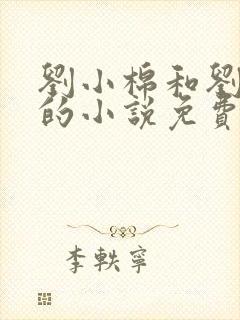 劉小棉和劉
的小說免費
李軼寧